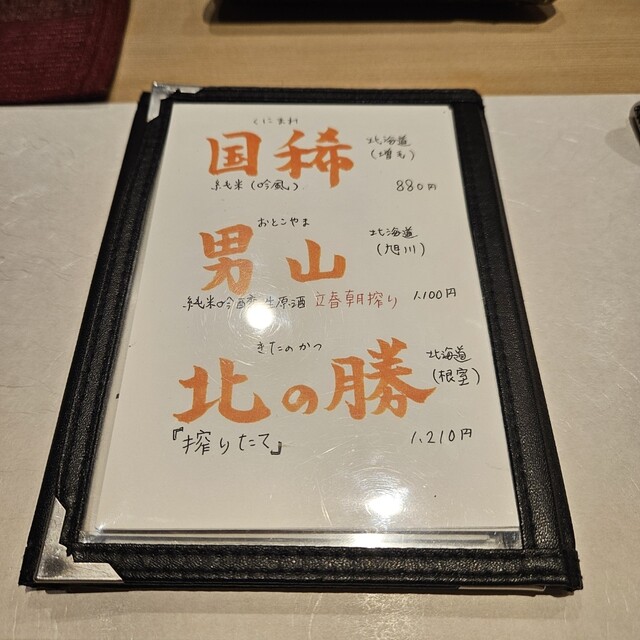 くにまれ
国稀 北海道
(増毛)
純米(吟風) 880円
おとこやま
男山 北海道
(旭川)
純米吟醸生原酒 立春朝搾り 1,100円
きたのかつ
北の勝 北海道
(根室)
『搾りたて』 1,210円